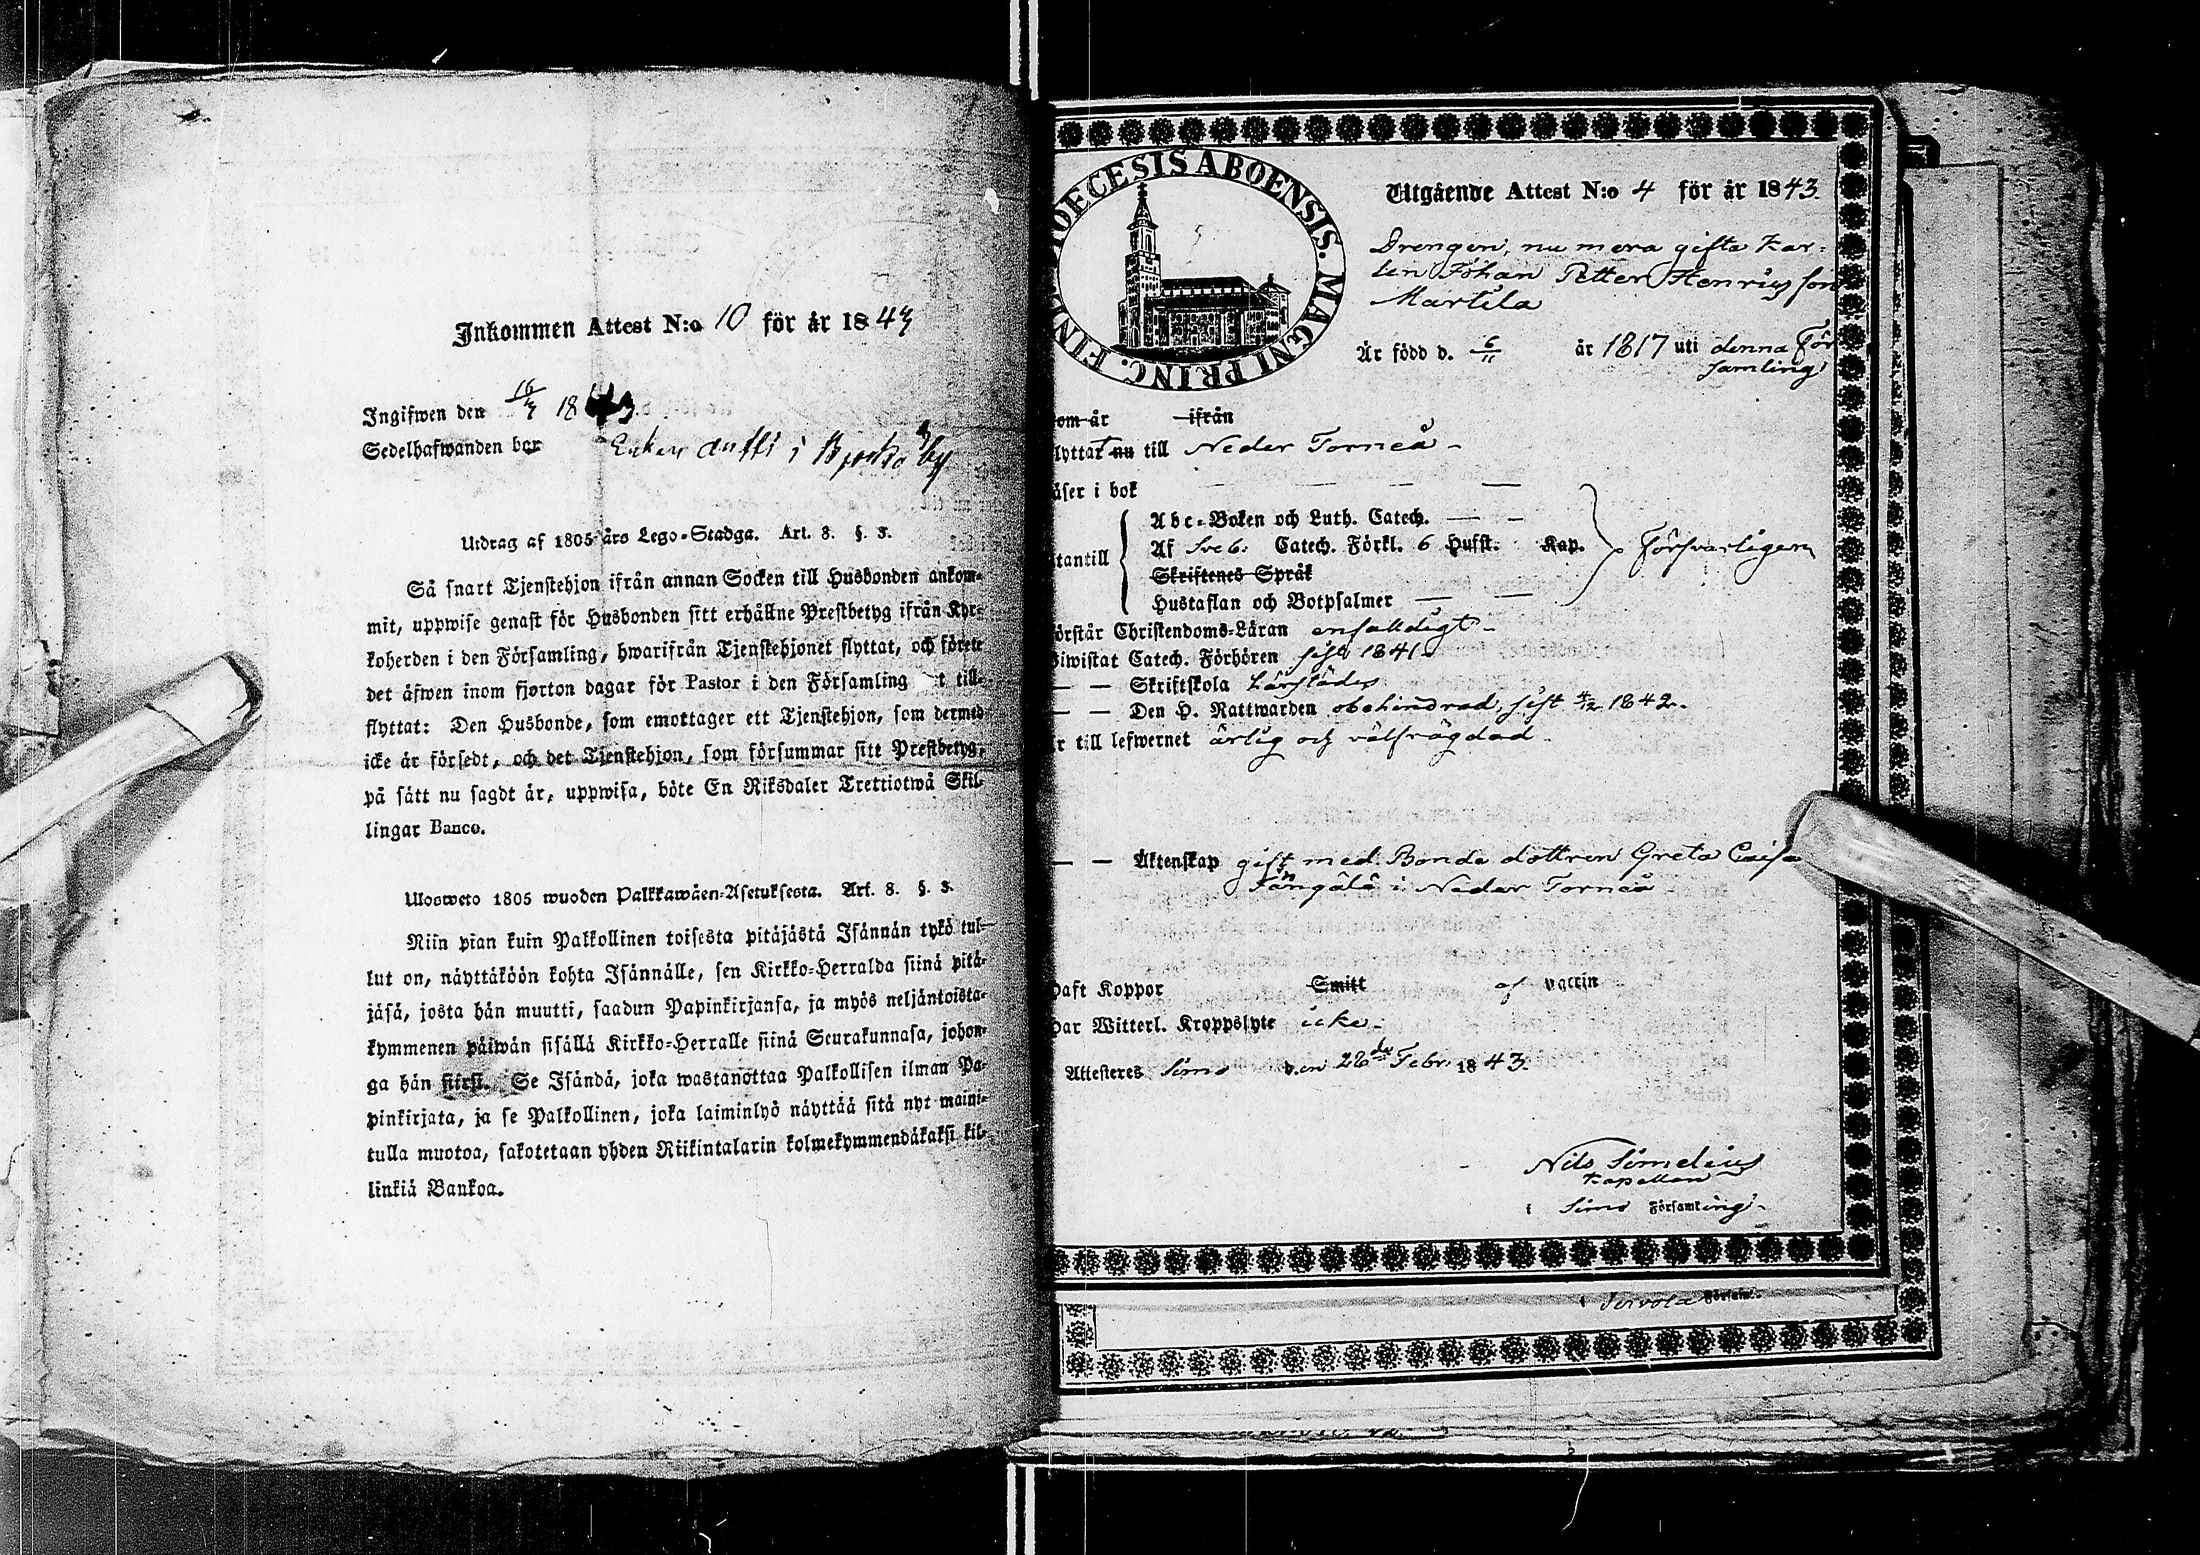 Inkommen Attest N:o 10 för år 1843
Ingifwen den 16/3 1843
Sedelhafwanden bor i Björkö by
Utdrag af 1805 års Lego-Stadga. Art. 8. §. 3.
Så snart Tjenstehjon ifrån annan Socken till Husbonden ankom-
mit, uppwise genast för Husbonden sitt erhållne Prestbetyg ifrån Kyr-
koherden i den Församling, hwarifrån Tjenstehjonet flyttat, och förete
det äfwen inom fjorton dagar för Pastor i den Församling t till-
flyttat: Den Husbonde, som emottager ett Tjenstehjon, som dermed
icke är försedt, och det Tjenstehjon, som försummar sitt Prestbetyg,
på sätt nu sagdt är, uppwisa, böte En Riksdaler Trettiotwå Skil-
lingar Banco.
Ulosweto 1805 wuoden Palkkawäen-Asetuksesta. Art. 8. §. 3.
Niin pian kuin Palkollinen toisesta pitäjästä Isännän tykö tul-
lut on, näyttäköön kohta Isännälle, sen Kirkko-Herralda siinä pitä-
jäsä, josta hän muutti, saadun Papinkirjansa, ja myös neljäntoista-
kymmenen päiwän sisällä Kirkko-Herralle siinä Seurakunnasa, johon-
ga hän siirsi. Se Isändä, joka wastanottaa Palkollisen ilman Pa-
pinkirjata, ja se Palkollinen, joka laiminlyö näyttää sitä nyt maini-
tulla muotoa, sakotetaan yhden Riikintalarin kolmekymmendäkaksi kil-
linkiä Bankoa.
DIOECESIS ABOENSIS. MAGNI PRINC. FINL
Utgående Attest N:o 4 för år 1843.
Drengen, nu mera gifta Kar-
len Johan Petter Henricsson
Martila
Är född d. 6/11 år 1817 uti denna För
samling
om år ifrån
lyttat nu till Neder Torneå
äser i bok
Abc-Boken och Luth. Catech.
Af Sveb. Catech. Förkl. 6 Hufst. Kap. Försvarligen
tantill
Skriftenes Språk
Hustaflan och Botpsalmer
örstår Christendoms-Läran enfalldigt
iwistat Catech. Förhören sist 1841
Skriftskola Lärstädes
Den H. Nattwarden obehindrad, sist 4/12 1842.
r till lefwernet ärlig och välfrägdad.
Äktenskap gift med Bonde dottren Greta Caisa
i Neder Torneå
haft Koppor Smitt af vaccin
har Witterl. Kroppslyte icke
Attesteres Simo den 28de Febr. 1843.
Nils Simelius
Kapellan
i Simo Församling
i Tervola Församl.